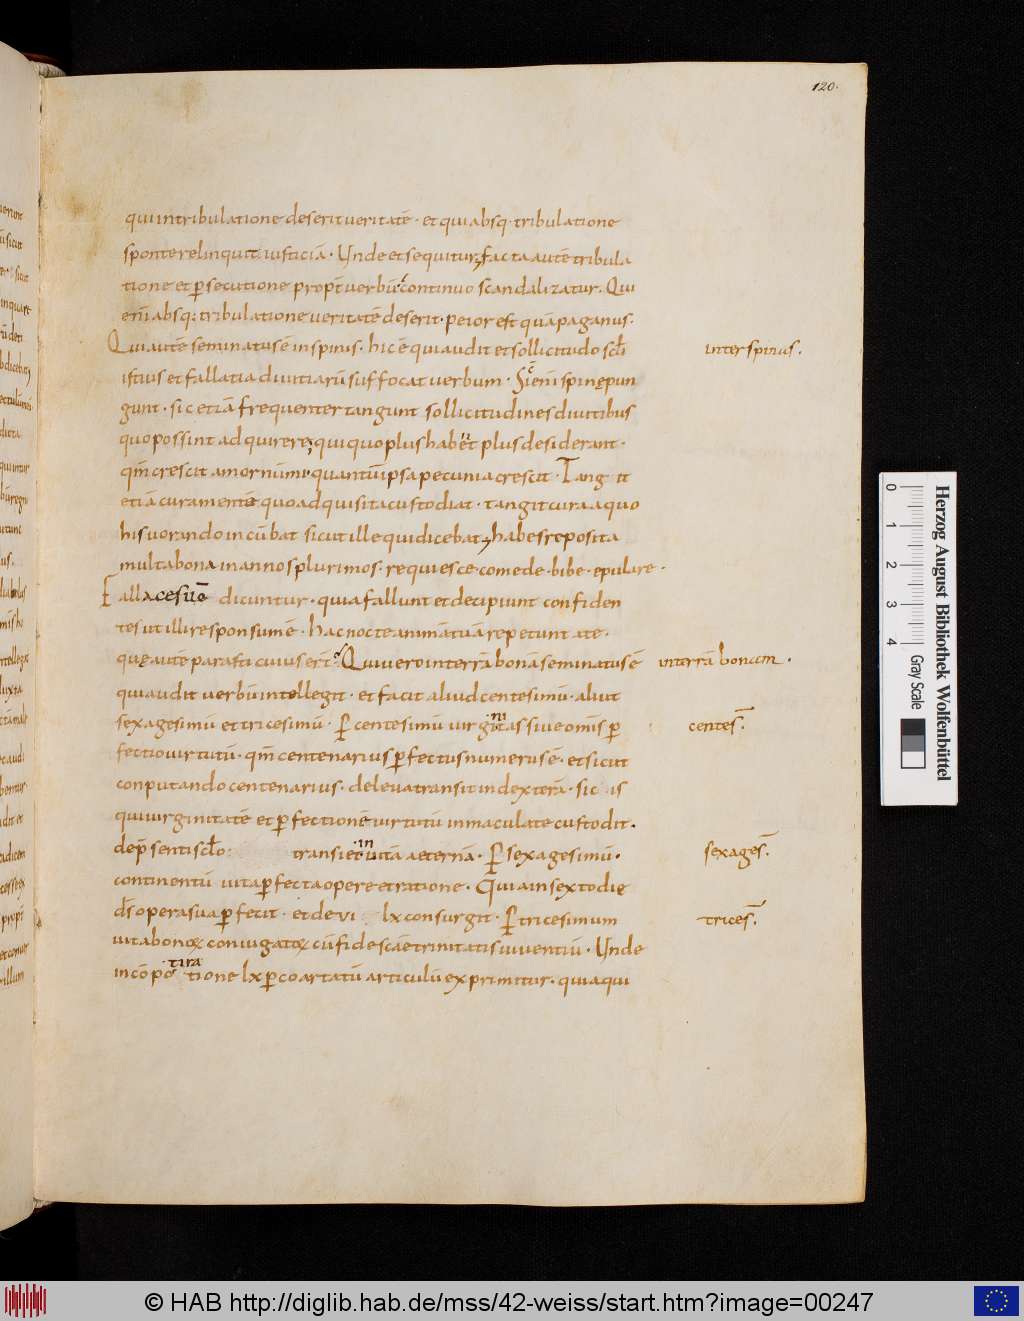 120.
qui in tribulatione deserit veritatē · et qui absq· tribulatione
sponte relinquit iusticiā · Unde et sequitur; facta autē tribula
tione et ꝑsecutione propt̄ verbū· continuo scandalizatur. Qui
enī absq; tribulatione veritatē deserit· peior est quā paganus·
Qui autē seminatus ē in spinis · hic ē qui audit et sollicitudo scl̄i
istius et fallatia divitiarū suffocat verbum · Sic enī spinę pun
gunt · sic etiā frequenter tangunt sollicitudines divitibus
quo possint adquirere; qui quo plus habet plus desiderant·
qm̄ crescit amor nūmi· quantū ipsa pecunia crescit · Tangit
etiā cura mentē quo adquisita custodiat · tangit cura a quo
his vorando incūbat sicut ille qui dicebat; habes reposita
multa bona in annos plurimos· requiesce· comede· bibe· epulare ·
Fallaces uō dicuntur · quia fallunt et decipiunt confiden
tes ut illi responsum ē · hac nocte animā tuā repetunt a te ·
quę autē parasti cuius erť· Qui vero in terrā bonā seminatus ē
qui audit verbū intellegit · et facit aliud centesimū · aliut
sexagesimū et tricesimū · P̄ centesimū virginitas sive om̄is ꝑ
fectio virtutū · qm̄ centenarius ꝑfectus numerus ē · et sicut
conputando centenarius · de leva transit in dexterā · sic is
qui virginitatē et ꝑfectionē virtutū inmaculate custodit·
de p̄senti scl̄o· transiet in vitā aeternā · P̄ sexagesimū·
continentū vita ꝑfecta opere et ratione · Quia in sexto die
ds̄ opera sua ꝑfecit · et de vi lx consurgit · P̄ tricesimum
vita bonoꝝ coniugatoꝝ cū fide scāe trinitatis viventiū · Unde
in cōpōtione lx ꝑ coartatū articulū exprimitur· quia qui
in
tira
inter spinas ·
in terrā bonam ·
centes̄·
sexages̄·
trices̄·
0 1 2 3 4
Herzog August Bibliothek Wolfenbüttel
Gray Scale
© HAB http://diglib.hab.de/mss/42-weiss/start.htm?image=00247